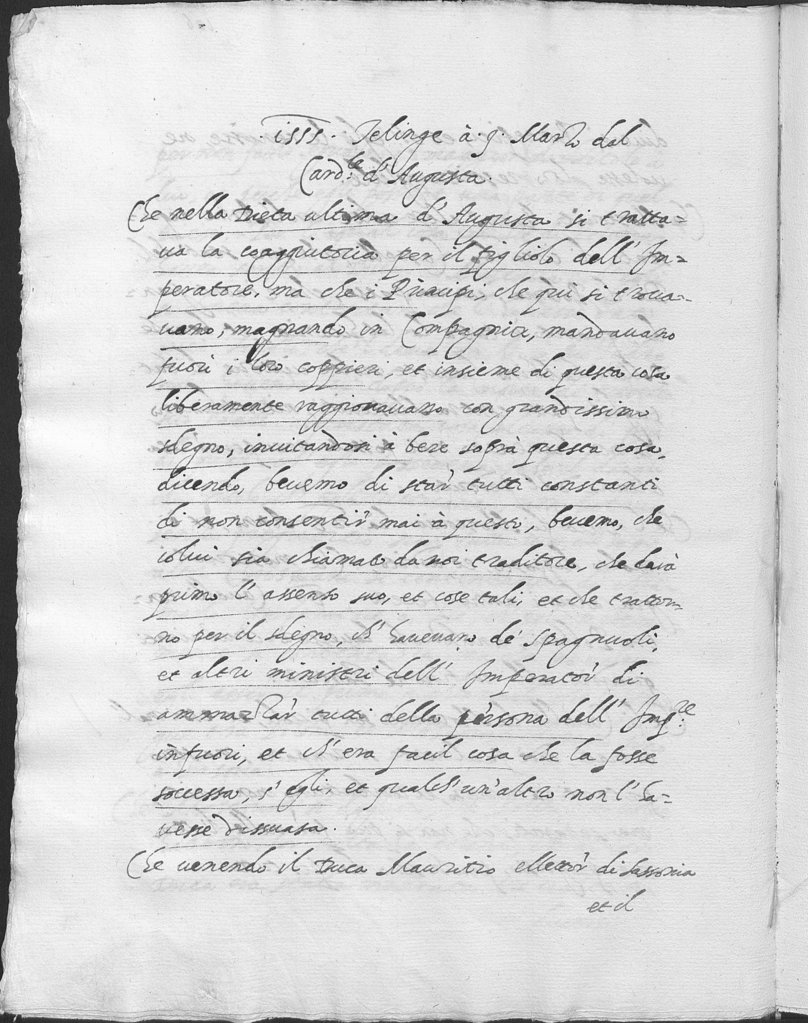 .1555. Telinge à .9. Marzo dal
Card.le d'Augusta.
Che nella Dieta ultima d'Augusta si tratta=
va la coaggiutoria per il figliolo dell'Im=
peratore, ma che i Principi, che qui si trova=
vano, magnando in Compagnia, mandavano
fuori i loro coppieri, et insieme di questa cosa
liberamente raggionavano con grandissimo
sdegno, invitandosi à bere soprà questa cosa,
dicendo, bevemo di star tutti constanti
di non consentir mai à questo, bevemo, che
colui sia chiamato da noi traditore, che darà
primo l'assenso suo, et cose tali, et che trattor=
no per il sdegno, ch'havevano de' Spagnuoli,
et altri ministri dell'Imperator di
ammazzar tutti della persona dell'Imp.re
infuori, et ch'era facil cosa che la fosse
socessa, s'egli, et qualch'un'altro non l'ha=
vesse dissuasa.
Che venendo il Duca Mauritio elletor di Sassonia
et il